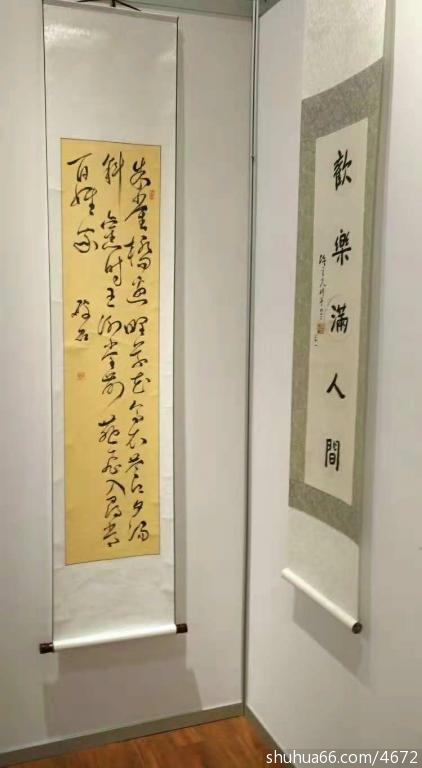 朱雀橋邊野草花烏衣巷口夕陽
斜舊時王謝堂前燕飛入尋常
百姓家
歡樂滿人間
shuhua66.com/4672